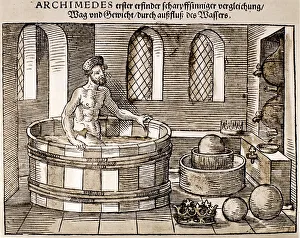 ARCHIMEDES erster erfinder scharpffsinniger vergleichung/
Wag und Gewicht/durch außfluß des Wassers.